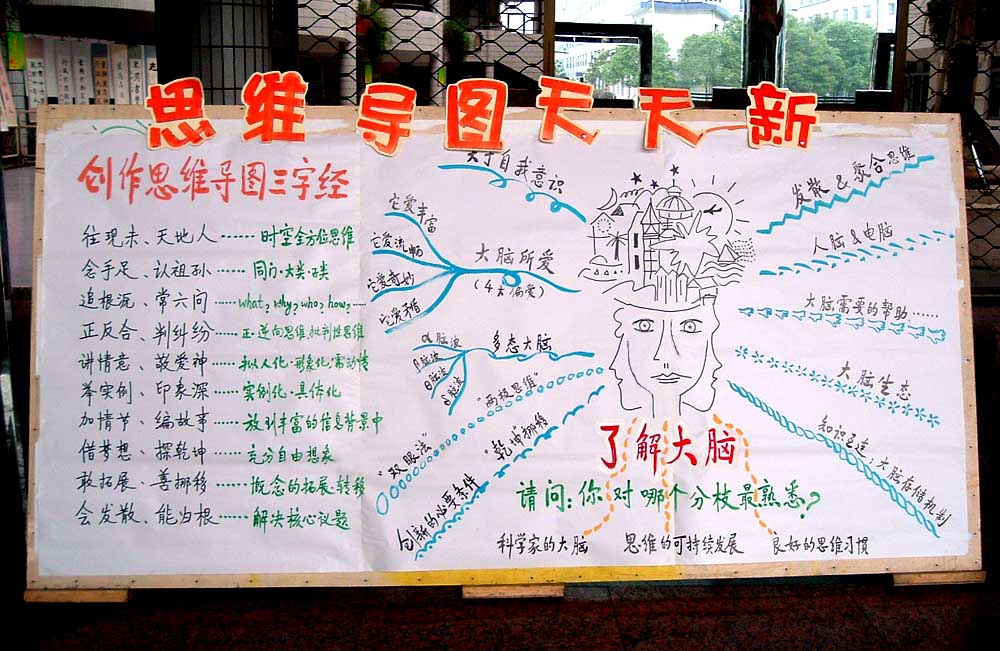 思维导图天天新
创作思维导图三字经
往现未、天地人……时空全方位思维
念手足、认祖孙……同门·大类·子类
追根泥、常六问……what? why? who? how?……
正反合、判纠纷……正·逆向思维,批判性思维
讲情意、敬爱神……拟人化·形象化·需动情
举实例、印象深……实例化·具体化
加情节、编故事……放到丰富的信息背景中
借梦想、探乾坤……充分自由想象
敢拓展、善挪移……概念的拓展、转移
会发散、能归根……解决核心议题
关于自我意识
它爱丰富
它爱流畅
它爱奇妙
它爱矛盾
大脑所爱
(4大偏爱)
α脑波
β脑波
θ脑波
δ脑波
多态大脑
"两极思维"
"双眼法"
"乾坤挪移"
创新的必要条件
发散 & 聚合思维
人脑 & 电脑
大脑需要的帮助……
大脑生态
知识互连:大脑存储机制
了解大脑
请问:你对哪个分枝最熟悉?
科学家的大脑
思维的可持续发展
良好的思维习惯